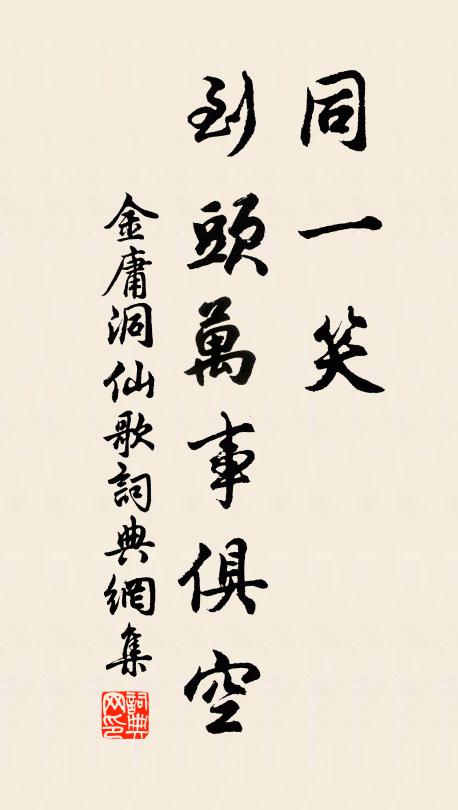 同一笑
到頭萬事俱空
金庸洞仙歌詞典網集
詞典
网印